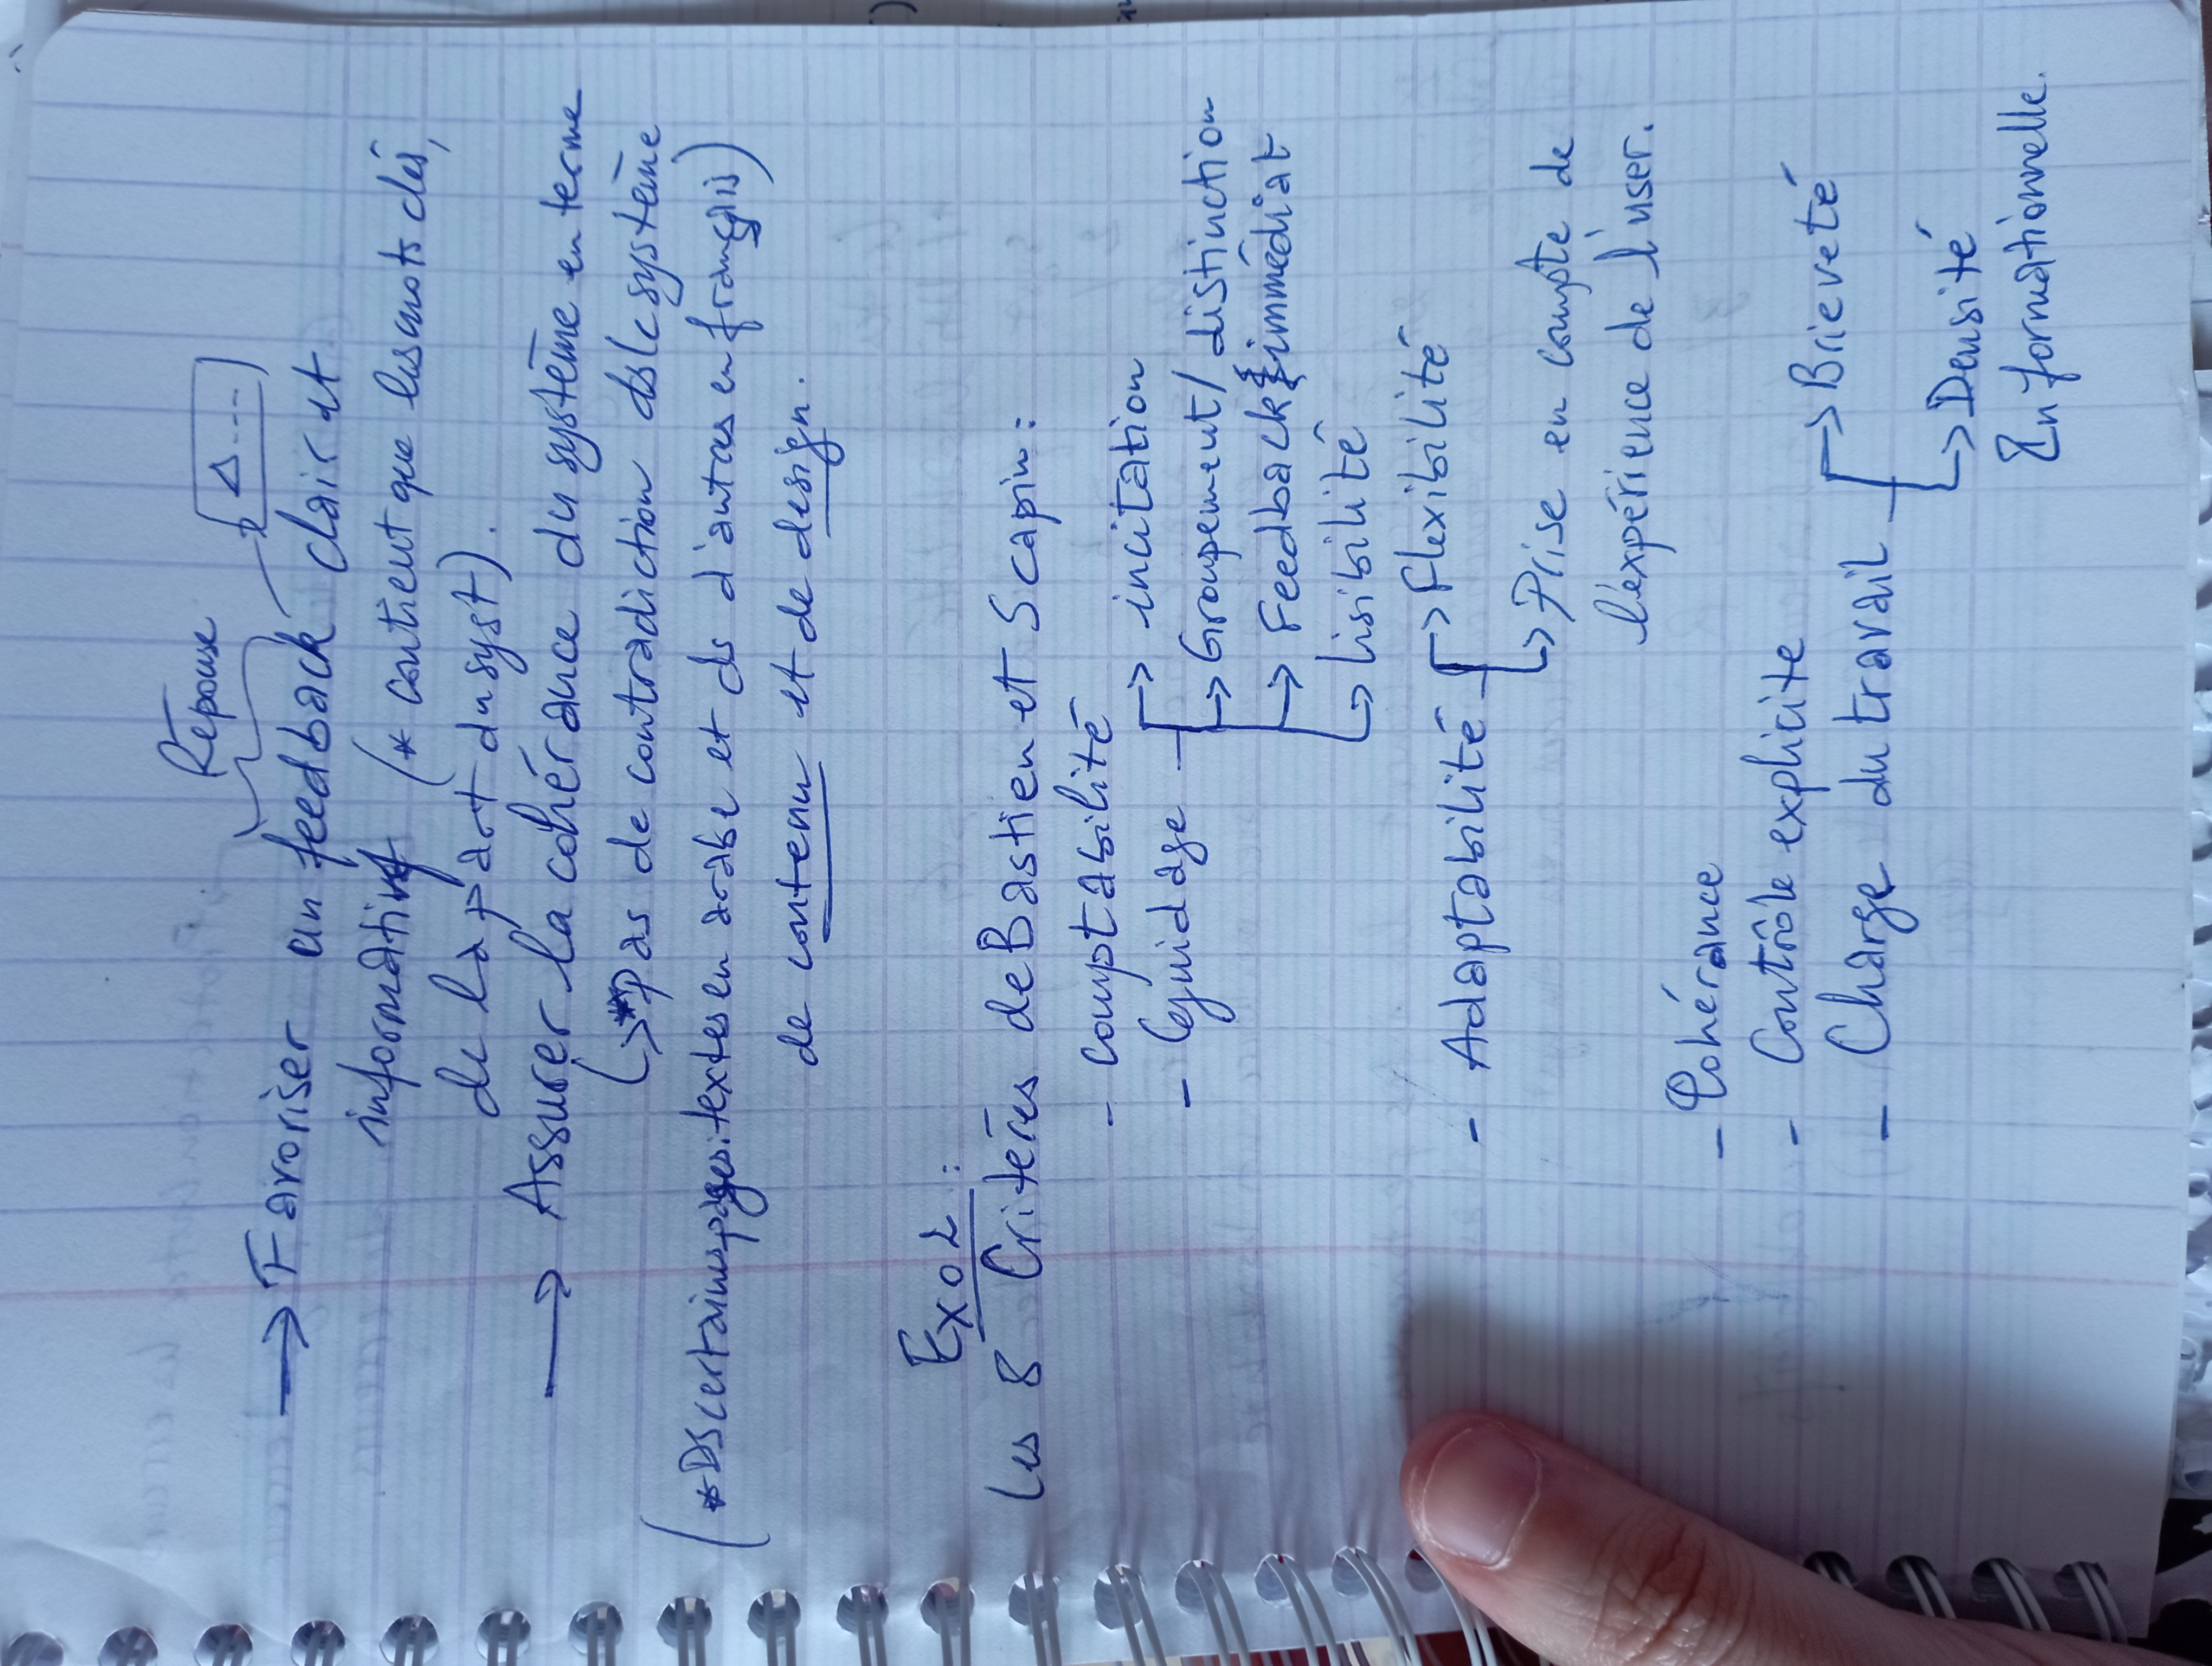 Réponse
Δ...
→ Favoriser un feedback clair et
informatif (* contient que les mots clés,
de la part du syst).
→ Assurer la cohérance du système en terme
↳ * pas de contradiction ds le système
(* Ds certaines pages: textes en arabe et ds d'autres en français)
de contenu et de design.
Exo2 :
Les 8 Critères de Bastien et Scapin :
- comptabilité
- Guidage → incitation
→ Groupement / distinction
→ Feedback immédiat
→ lisibilité
- Adaptabilité → Flexibilité
→ Prise en compte de
l'expérience de l'user.
- Cohérance
- Contrôle explicite
- Charge du travail → Brieveté
→ Densité
Informationnelle.